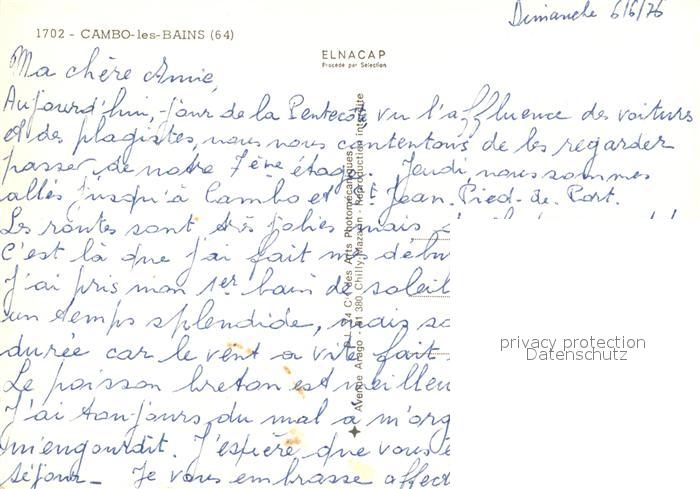 Dimanche 6/6/76
1702 - CAMBO-les-BAINS (64)
ELNACAP
Procédé par Sélection
Ma chère Amie,
Aujourd'hui, jour de la Pentecôte vu l'affluence des voitures
et des plagistes, nous nous contentons de les regarder
passer de notre 7ème étage. Jeudi, nous sommes
allés jusqu'à Cambo et St Jean. Pied. de. Port.
Les routes sont très jolies mais
C'est là que j'ai fait mes
J'ai pris mon 1er bain de soleil
un temps splendide, mais sa
durée car le vent a vite fait
Le poisson breton est meilleu
J'ai toujours du mal à m'org
m'engourdit. J'espère que vous
séjour - Je vous embrasse affec
Cie des Arts Photomécaniques
Avenue Arago - 91 380 Chilly-Mazarin - Reproduction interdite
privacy protection
Datenschutz